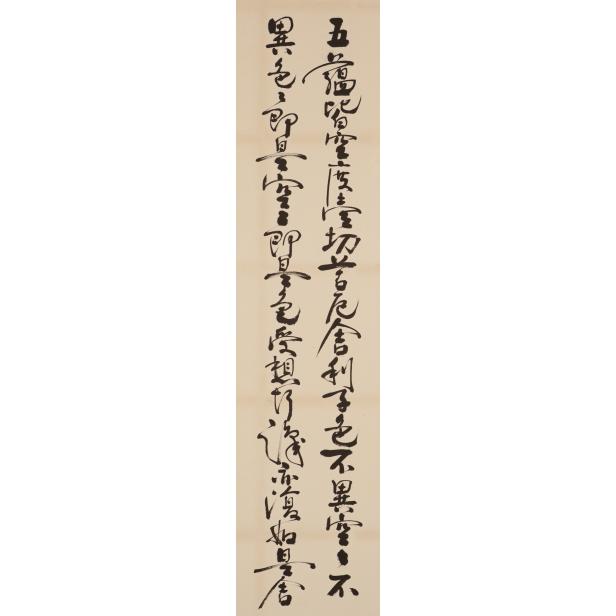 五蘊皆空度壹切苦厄舍利子色不異空〻不
異色〻即是空〻即是色受想行識亦復如是舍